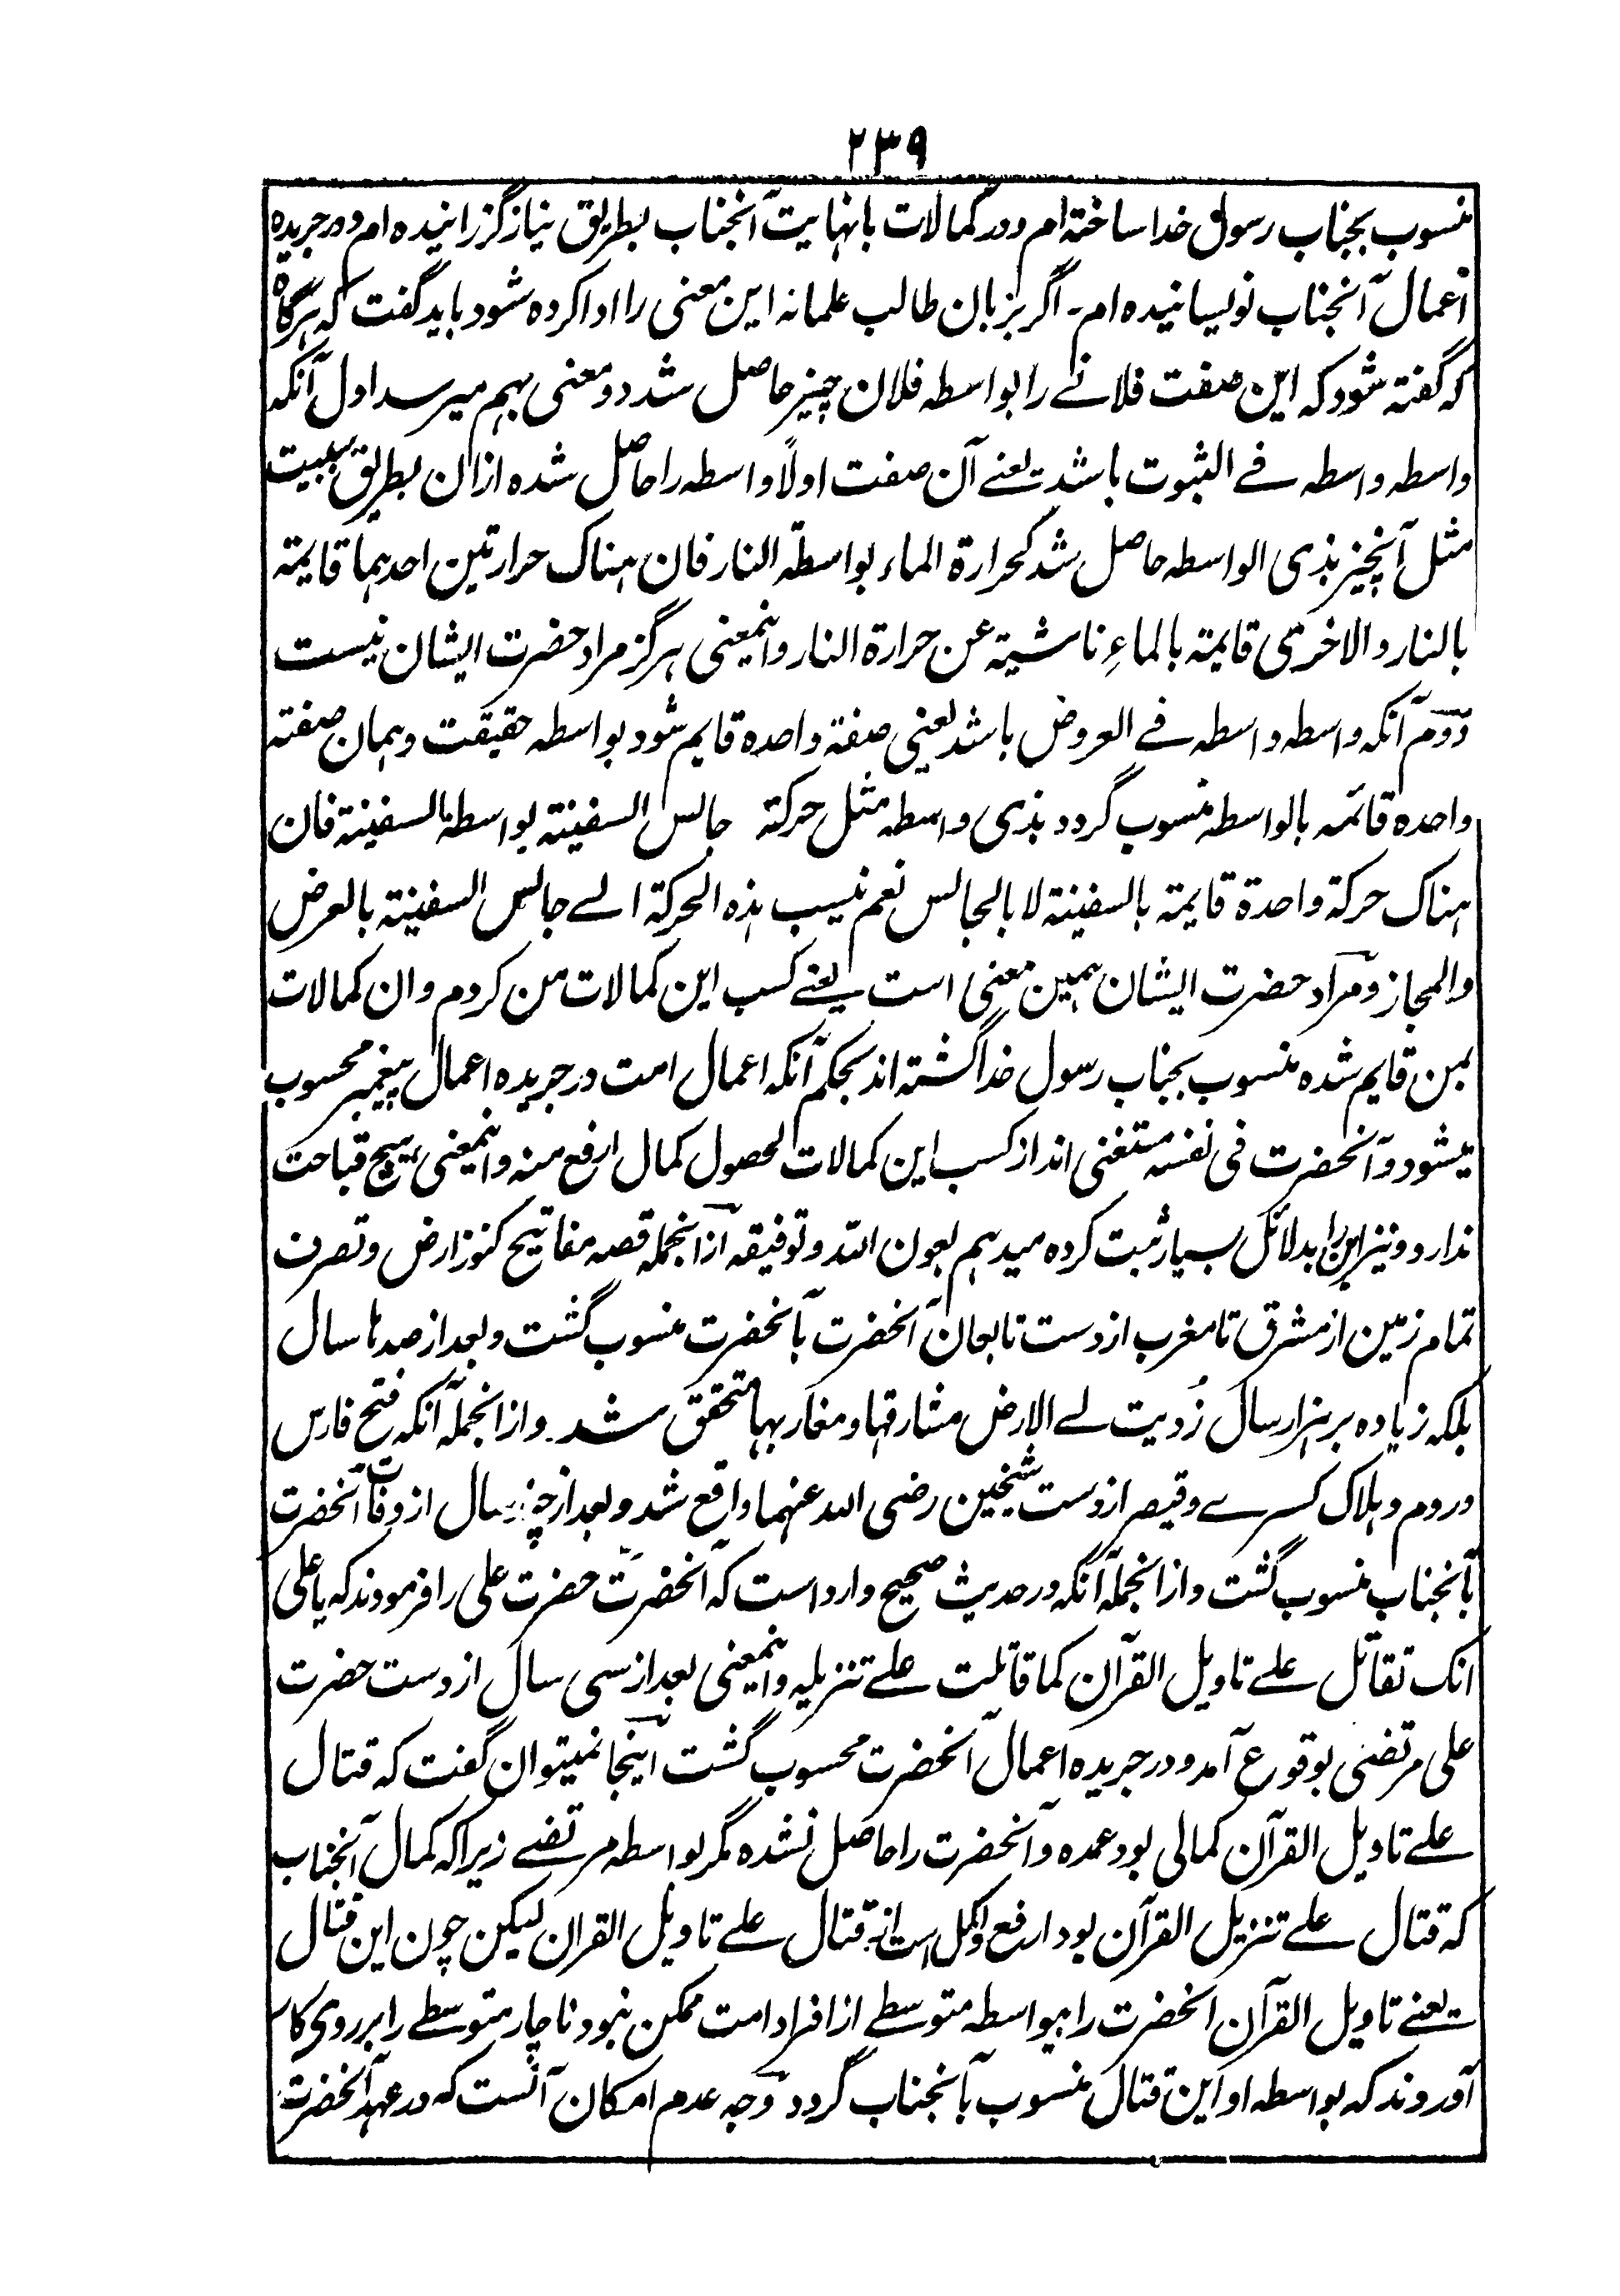 ۲۳۹
منسوب بجناب رسول خدا ساختہ ام و در کمالات بانہایت آنجناب بطریق نیاز گزرانیدہ ام و در جریدہ
اعمال آنجناب نویسانیدہ ام۔ اگر بزبان طالب علمانہ این معنی را ادا کردہ شود باید گفت کہ ہرگاہ
کہ گفتہ شود کہ این صفت فلانے را بواسطہ فلان چیز حاصل شد دو معنی بہم میرسد اول آنکہ
واسطہ واسطہ فے الثبوت باشد یعنے آن صفت اولاً واسطہ را حاصل شدہ ازان بطریق سببیت
مثل آنچیز بذی الواسطہ حاصل شد کحرارۃ الماء بواسطۃ النار فان ہناک حرارتین احدہما قایمۃ
بالنار والاخریٰ قایمۃ بالماءِ ناشیۃ عن حرارۃ النار و اینمعنی ہرگز مراد حضرت ایشان نیست
دوم آنکہ واسطہ واسطہ فے العروض باشد یعنی صفۃ واحدہ قایم شود بواسطہ حقیقت وہمان صفتہ
واحدہ قائمہ بالواسطہ منسوب گردد بذی واسطہ مثل حرکۃ جالس السفینۃ بواسطۃ السفینۃ فان
ہناک حرکۃ واحدۃ قایمۃ بالسفینۃ لا بالجالس نعم ینسب ہذہ الحرکۃ الے جالس السفینۃ بالعرض
والمجاز و مراد حضرت ایشان ہمین معنی است یعنے کسب این کمالات من کردم و ان کمالات
بمن قایم شدہ منسوب بجناب رسول خدا گشتہ اند بحکم آنکہ اعمال امت در جریدہ اعمال پیغمبر محسوب
میشود و آنحضرت فی نفسہ مستغنی اند از کسب این کمالات لحصول کمال ارفع منہ و اینمعنی ہیچ قباحت
ندارد و نیز این را بدلائل بسیار ثبت کردہ میدہم بعون اللہ و توفیقہ ازانجملہ قصہ مفاتیح کنوز ارض و تصرف
تمام زمین از مشرق تا مغرب از دست تابعان آنحضرت بآنحضرت منسوب گشت و بعد از صدہا سال
بلکہ زیادہ بر ہزار سال زُویت لے الارض مشارقہا و مغاربہا متحقق شد۔ و ازانجملہ آنکہ فتح فارس
و روم و ہلاک کسرے و قیصر از دست شیخین رضی اللہ عنہما واقع شد و بعد از چند سال از وفات آنحضرت
بآنجناب منسوب گشت و ازانجملہ آنکہ در حدیث صحیح وارد است کہ آنحضرت حضرت علی را فرمودند کہ یا علی
انک تقاتل علے تاویل القرآن کما قاتلت علے تنزیلہ و اینمعنی بعد از سی سال از دست حضرت
علی مرتضی بوقوع آمد و در جریدہ اعمال آنحضرت محسوب گشت اینجا نمیتوان گفت کہ قتال
علے تاویل القرآن کمالی بود عمدہ و آنحضرت را حاصل نشدہ مگر بواسطہ مرتضے زیرا کہ کمال آنجناب
کہ قتال علے تنزیل القرآن بود ارفع و اکمل است از قتال علے تاویل القران لیکن چون این قتال
یعنے تاویل القرآن آنحضرت را بیواسطہ متوسطے از افراد امت ممکن نبود ناچار متوسطے را بر روی کار
آوردند کہ بواسطہ او این قتال منسوب بآنجناب گردد وجہ عدم امکان آنست کہ در عہد آنحضرت